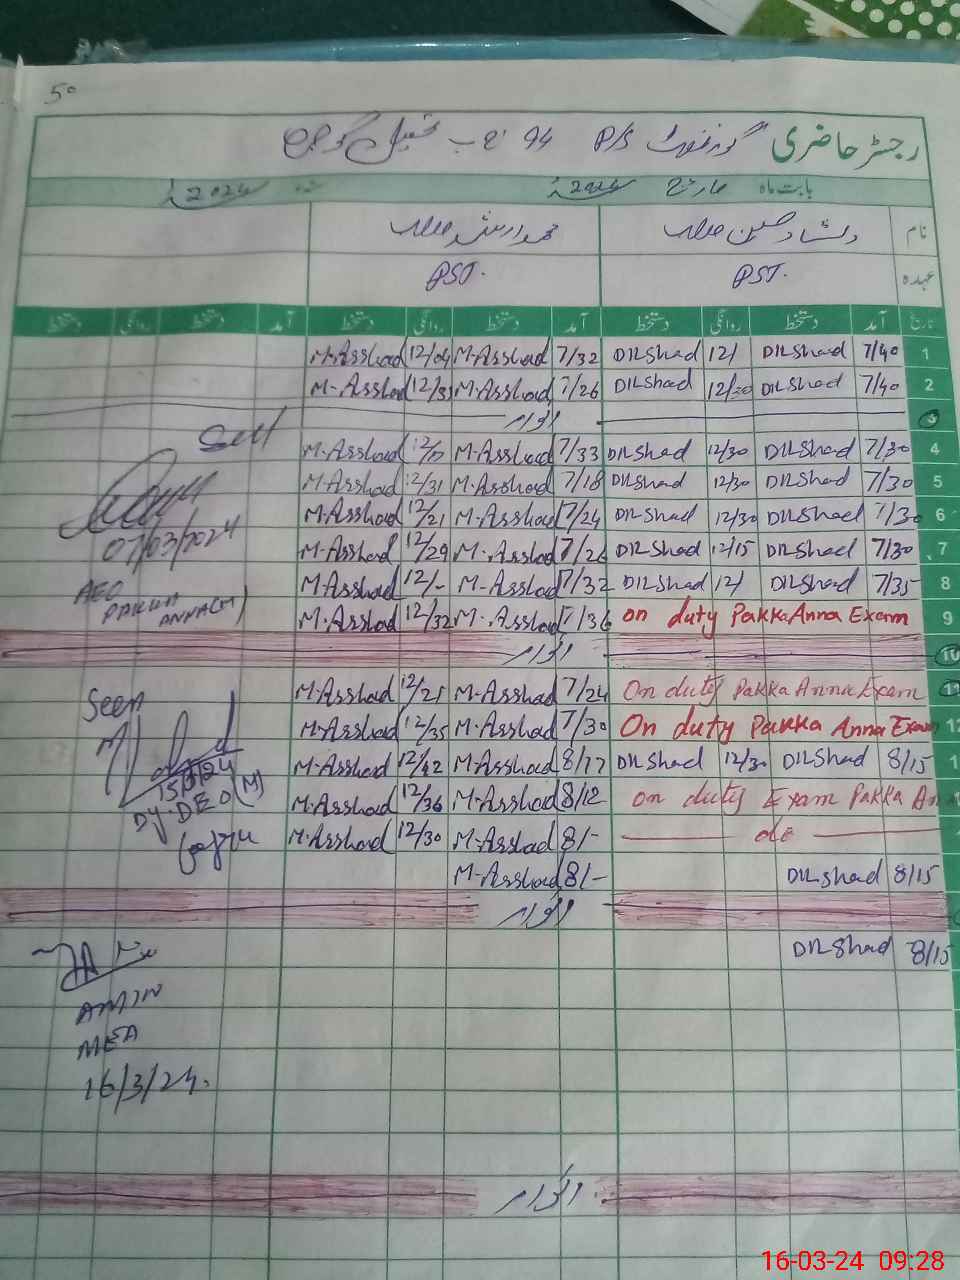 50
رجسٹر حاضری گورنمنٹ P/S 94 ج ب تحصیل گوجرہ
بابت ماہ مارچ 2024ء سنہ 2024ء
نام دلشاد حسین صاحب محمد ارشد صاحب
عہدہ PST. PST.
تاریخ آمد دستخط روانگی دستخط آمد دستخط روانگی دستخط آمد دستخط روانگی دستخط
M-Asshad 12/04 M-Asshad 7/32 DILShad 12/ DILShad 7/40 1
M-Asshad 12/31 M-Asshad 7/26 DILShad 12/30 DILShad 7/40 2
اتوار 3
M-Asshad M-Asshad 7/33 DILShad 12/30 DILShad 7/30 4
M-Asshad 12/31 M-Asshad 7/18 DILShad 12/30 DILShad 7/30 5
M-Asshad 12/21 M-Asshad 7/24 DILShad 12/30 DILShad 7/30 6
M-Asshad 12/29 M-Asshad 7/26 DILShad 12/15 DILShad 7/30 7
M-Asshad 12/- M-Asshad 7/32 DILShad 12/ DILShad 7/35 8
M-Asshad 12/32 M-Asshad 7/36 on duty Pakka Anna Exam 9
اتوار 10
M-Asshad 12/25 M-Asshad 7/24 On duty Pakka Anna Exam 11
M-Asshad 12/35 M-Asshad 7/30 On duty Pakka Anna Exam 12
M-Asshad 12/42 M-Asshad 8/17 DILShad 12/30 DILShad 8/15 1
M-Asshad 12/36 M-Asshad 8/12 on duty Exam Pakka An
M-Asshad 12/30 M-Asshad 8/- do
M-Asshad 8/- DILShad 8/15
اتوار
DILShad 8/15
اتوار
07/03/2024
AEO
PAKKA
ANNA(M)
Seen
15/3/24
Dy. DEO (M)
AMIN
MEA
16/3/24.
16-03-24 09:28